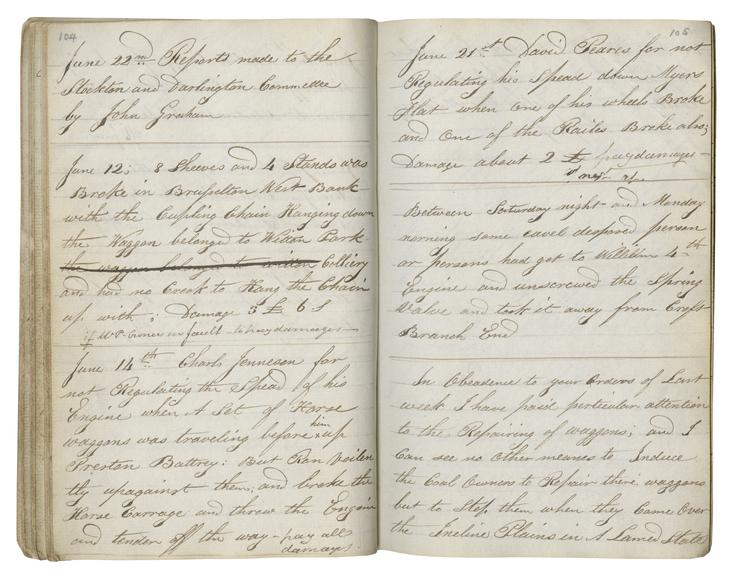 104
June 22nd Reports made to the
Stockton and Darlington Committee
by John Graham
June 12; 8 Sheeves and 4 Stands was
Broke in Brusselton West Bank
with the Cupling Chain Hanging down
the Waggon belonged to Witton Park
the waggon belonged to witton Colliery
and had no Crook to Hang the Chain
up with; Damage 5 £ 6 S
if W P Owner in fault - to pay damages
June 14th Charls Jenneson for
not Regulating the Spead of his
Engine when A Set of Horse
waggons was traveling before him up
Preston Battrey: But Ran Voilen
tly upagainst them, and broke the
Horse Carrage and threw the Engin
and tender off the way - pay all
damages.
105
June 21st David Peares for not
Regulating his Spead down Myers
Flat when one of his wheels Broke
and One of the Railes Broke also;
Damage about 2 £ pay damages
Between Saturday night and Monday
morning some evel desposed person
or persons had got to 4th
Engine and unscrewed the Spring
Valve and took it away from Croft
Branch End
In Obeadence to your Orders of Last
week I have paid perticular attention
to the Repairing of waggons; and I
Can see no Other meanes to Induce
the Coal Owners to Repair there waggons
but to Stop them when they Come Over
the Incline Plains in A Lamed State